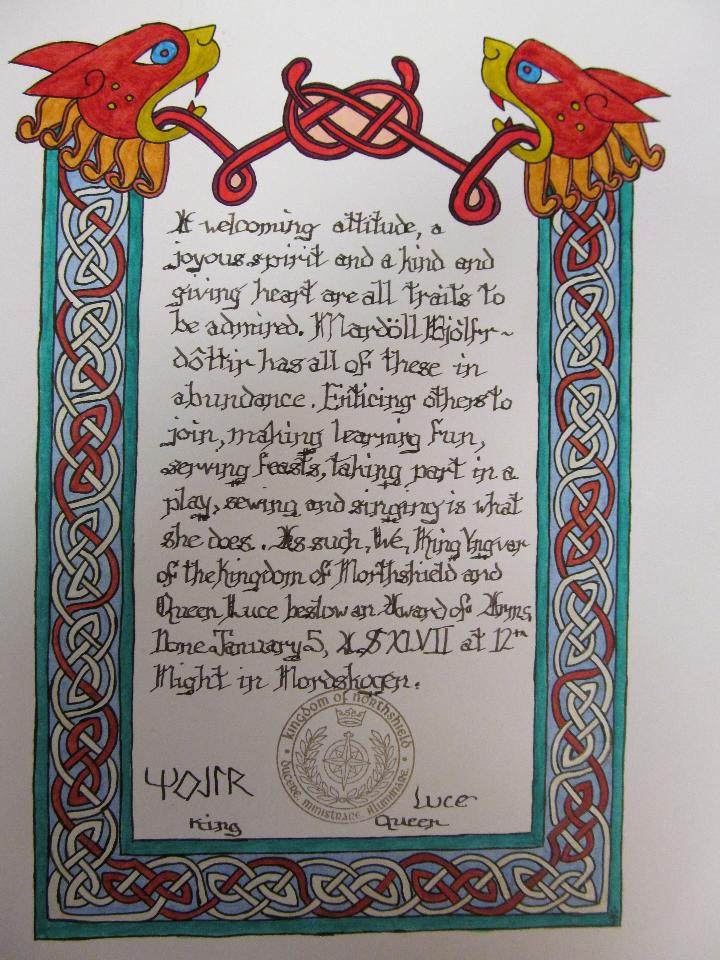 A welcoming attitude, a
joyous spirit and a kind and
giving heart are all traits to
be admired. Mardöll Bjólfr~
dôttir has all of these in
abundance. Enticing others to
join, making learning fun,
serving feasts, taking part in a
play, sewing and singing is what
she does. As such, We, King Yngvar
of the Kingdom of Northshield and
Queen Luce bestow an Award of Arms.
Done January 5, AS XLVII at 12th
Night in Nordskogen.
Kingdom of Northshield
Ducere Ministrare Illuminare
Luce
King
Queen